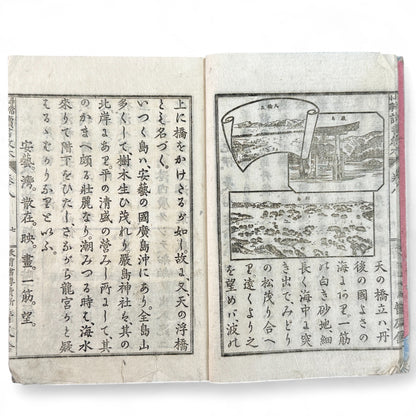 天の橋立ハ丹
後の國よさの
海にあり。一筋
ハ白き砂地細
長く海中に突
き出で、みどり
の松茂り合へ
り。遠くより之
を望めバ、波の
上に橋をかけたるが如し。故に又天の浮橋
とも名づく。
いつく島ハ、安藝の國廣島沖にあり。全島山
多くして、樹木生ひ茂れり。嚴島神社ハ、其の
北岸にありて、平の清盛の營みし所にして、其
のかまへ頗る壯麗なり。潮みつる時ハ、海水
來りて階下をひたし、さながら龍宮かと疑
はるゝばかりなりといふ。
安藝。灣。散在。映。畫。一筋。望。